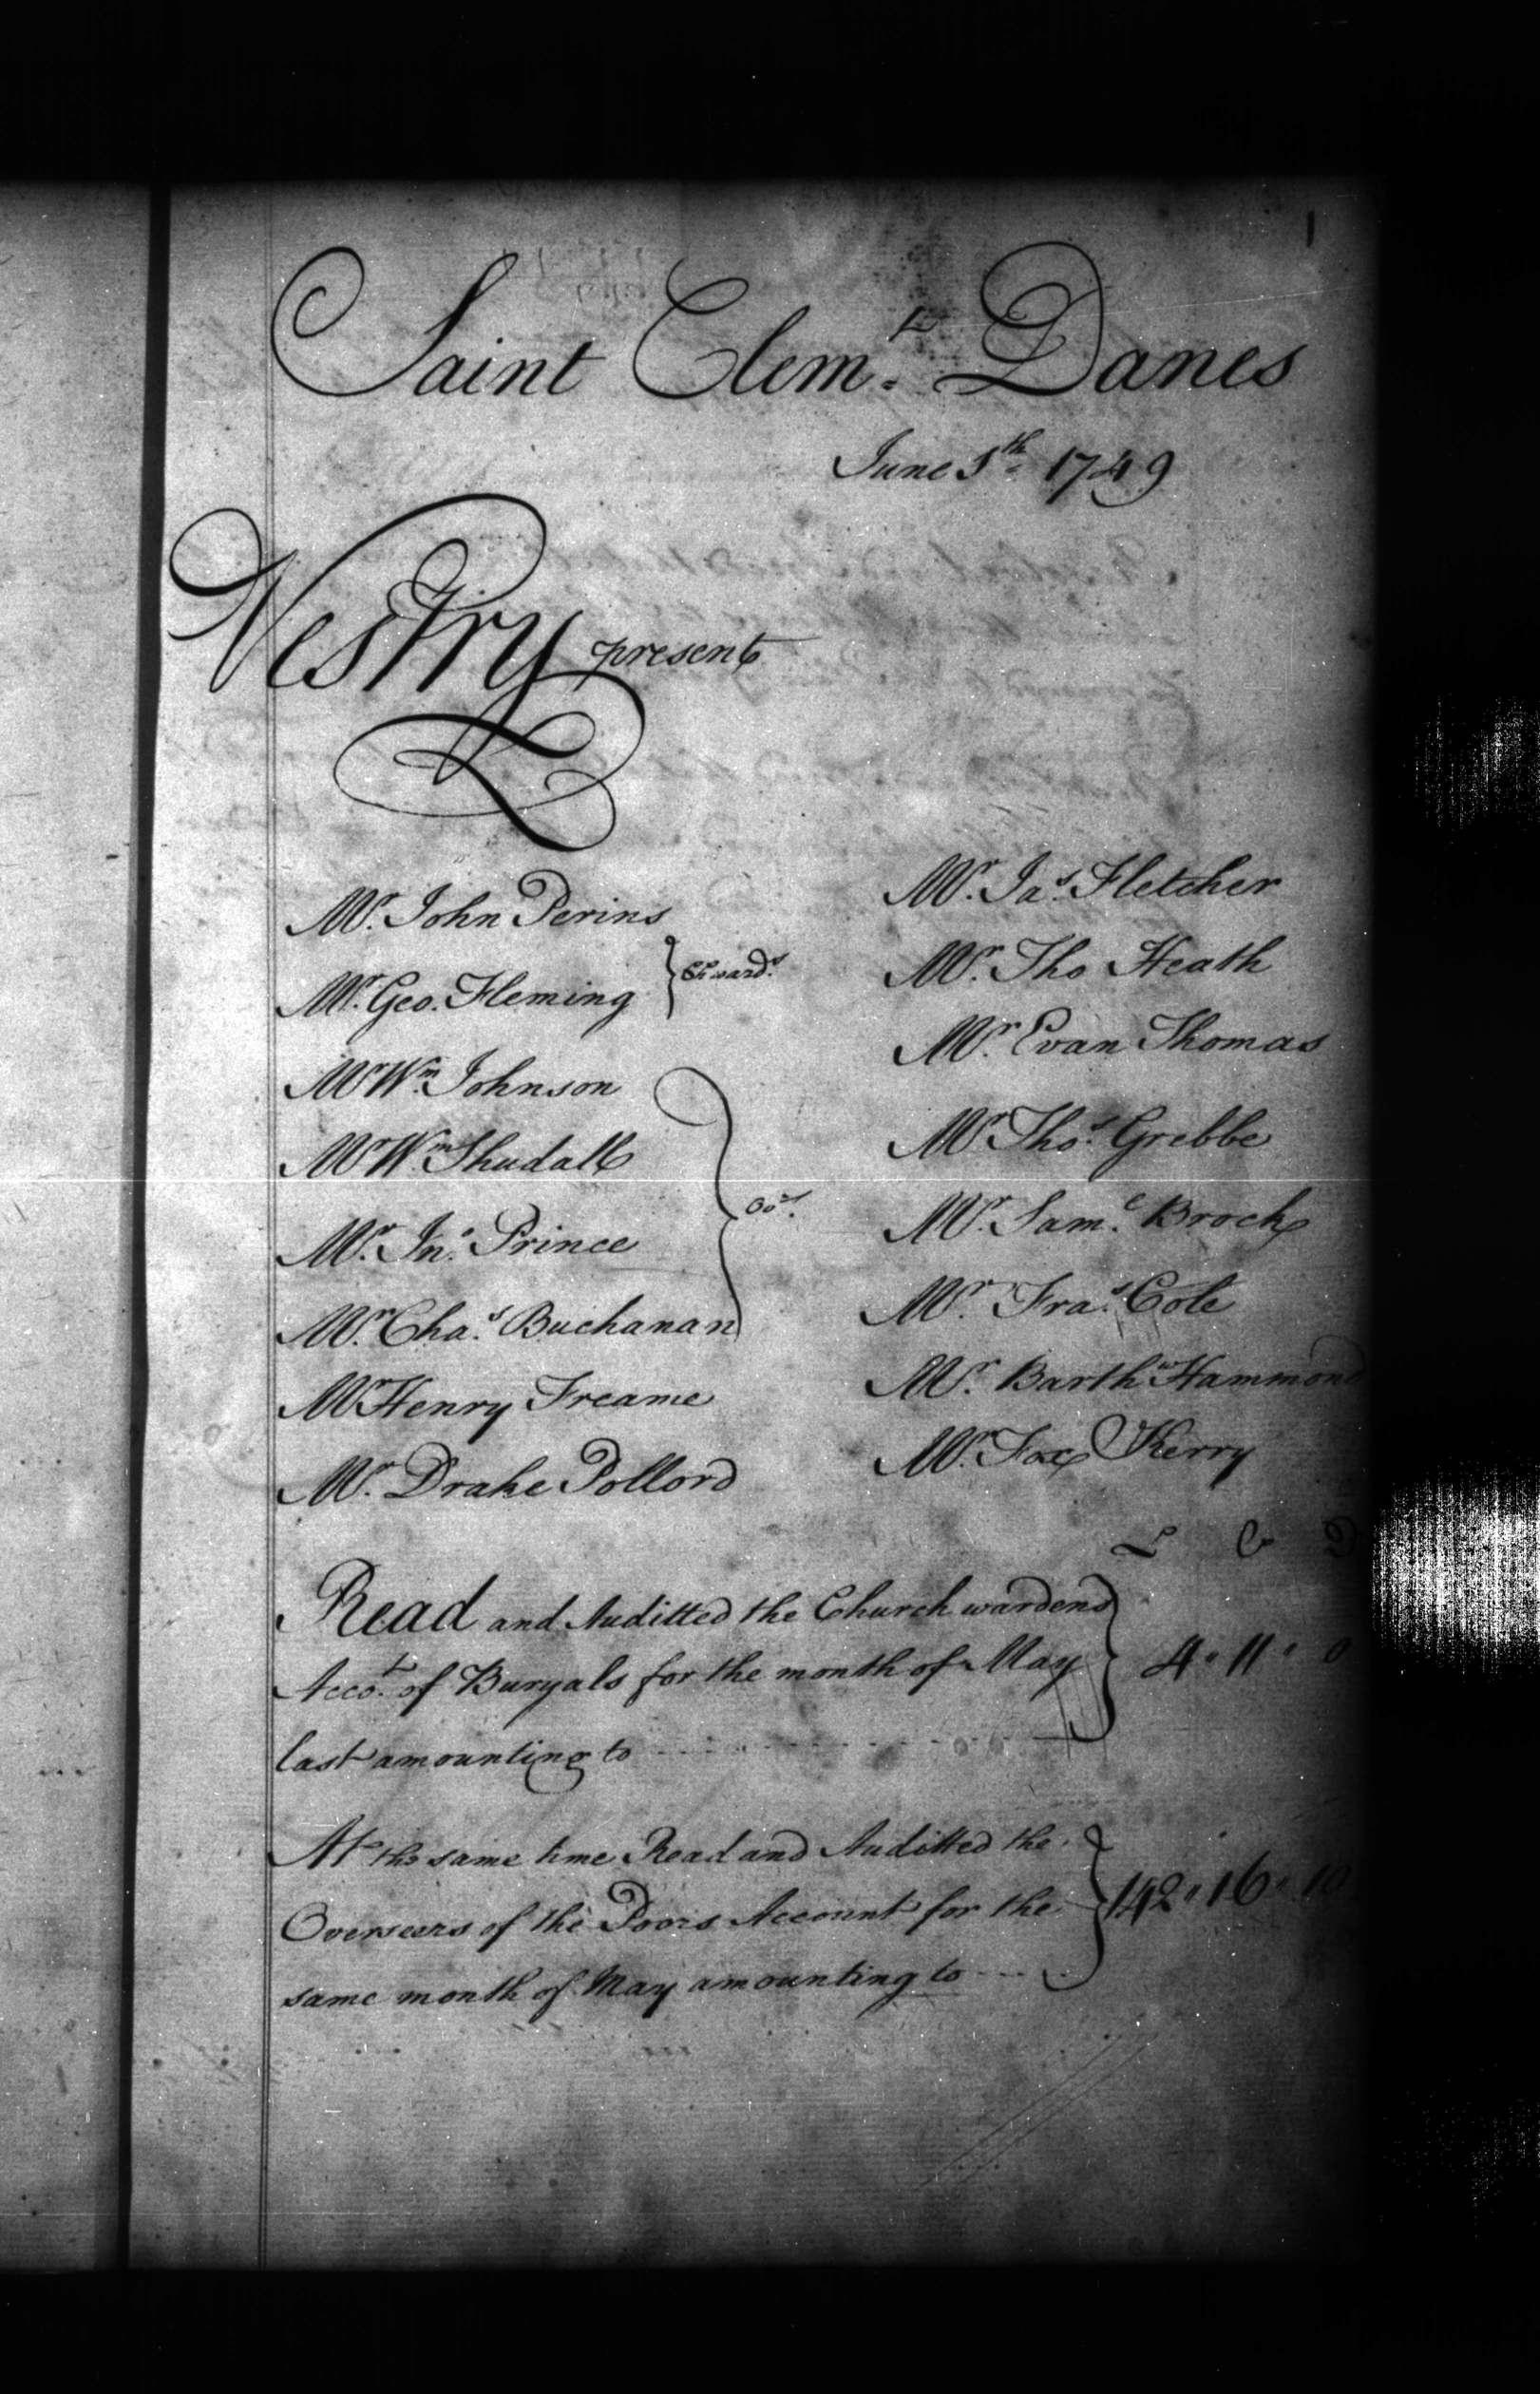 1
Saint Clem.t Danes
June 5th 1749
Vestry present
Mr. John Perins
Mr. Geo. Fleming
Chward.s
Mr Wm. Johnson
Mr Wm Thudall
Mr. Jno. Prince
Mr. Cha.s Buchanan
Mr Henry Freame
Mr. Drake Pollord
Mr. Jas. Fletcher
Mr. Tho Heath
Mr. Evan Thomas
Mr Tho.s Grebbe
Mr. Sam.l Brock
Mr. Fra.s Cole
Mr. Barthw Hammond
Mr. Fox Kerry
L S D
Read and Auditted the Church wardens
Acco.t of Buryals for the month of May
last amounting to
4 " 11 " 0
At the same time Read and Auditted the
Overseers of the Poors Account for the
same month of May amounting to
142 " 16 " 10